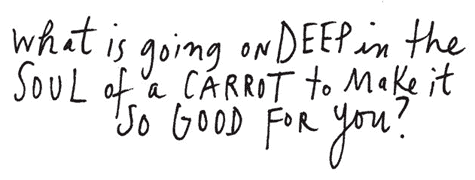 what is going ON DEEP in the
SOUL of a CARROT to Make it
SO GOOD FOR you?